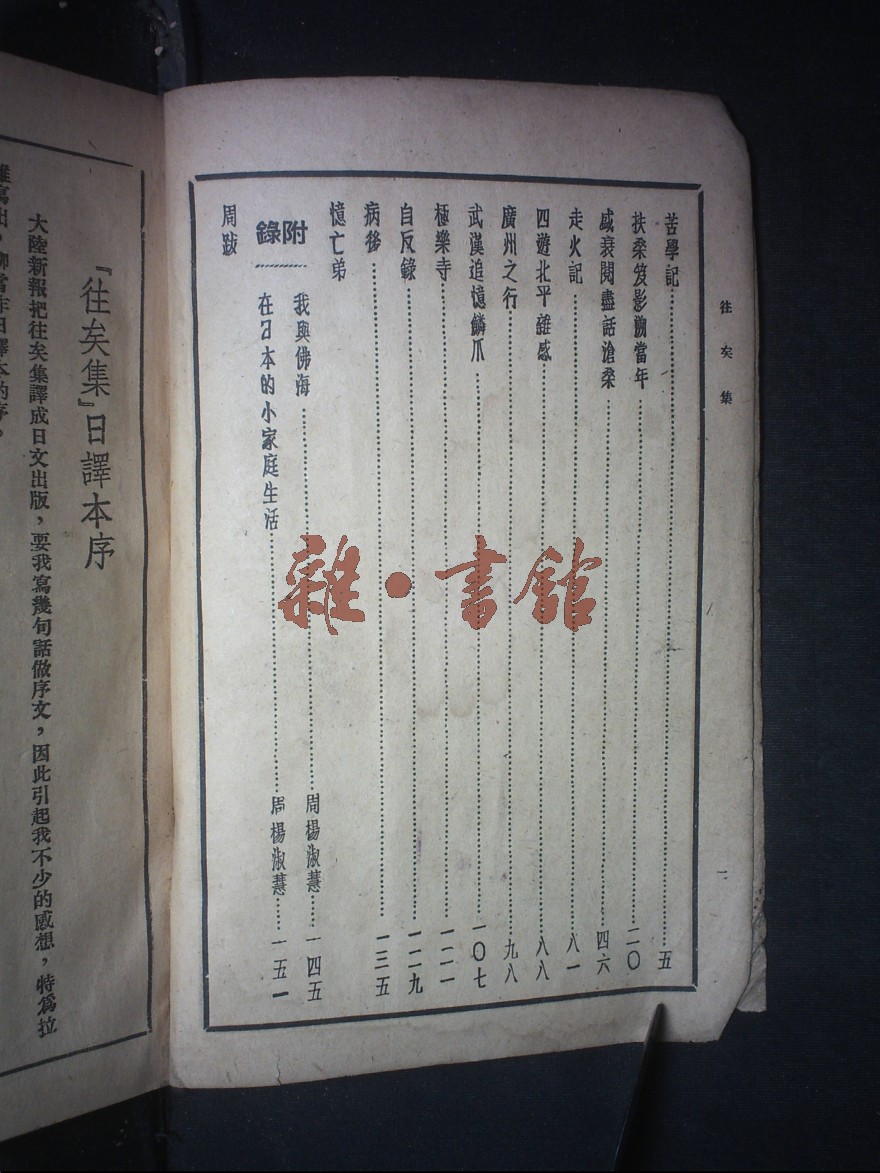 往矣集
一
苦學記……五
扶桑笈影溯當年……二〇
盛衰閱盡話滄桑……四六
走火記……八一
四遊北平雜感……八八
廣州之行……九八
武漢追憶鱗爪……一〇七
極樂寺……一二一
自反錄……一二九
病後……一三五
憶亡弟
附錄
我與佛海……周楊淑慧……一四五
在日本的小家庭生活……周楊淑慧……一五一
周跋
雜·書館
『往矣集』日譯本序
大陸新報把往矣集譯成日文出版，要我寫幾句話做序文，因此引起我不少的感想，特爲拉
雜寫出，聊當作日譯本的序。